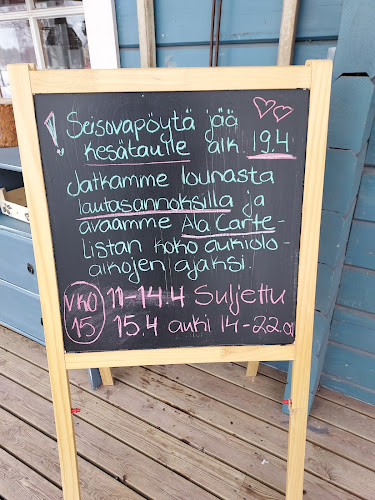 ! Seisovapöytä jää
kesätaulle alk. 19.4
Jatkamme lounasta
lautasannoksilla ja
avaamme Ala Carte-
listan koko aukiolo-
aikojen ajaksi.
VKO 11-14.4 Suljettu
15 15.4 auki 14-22.00